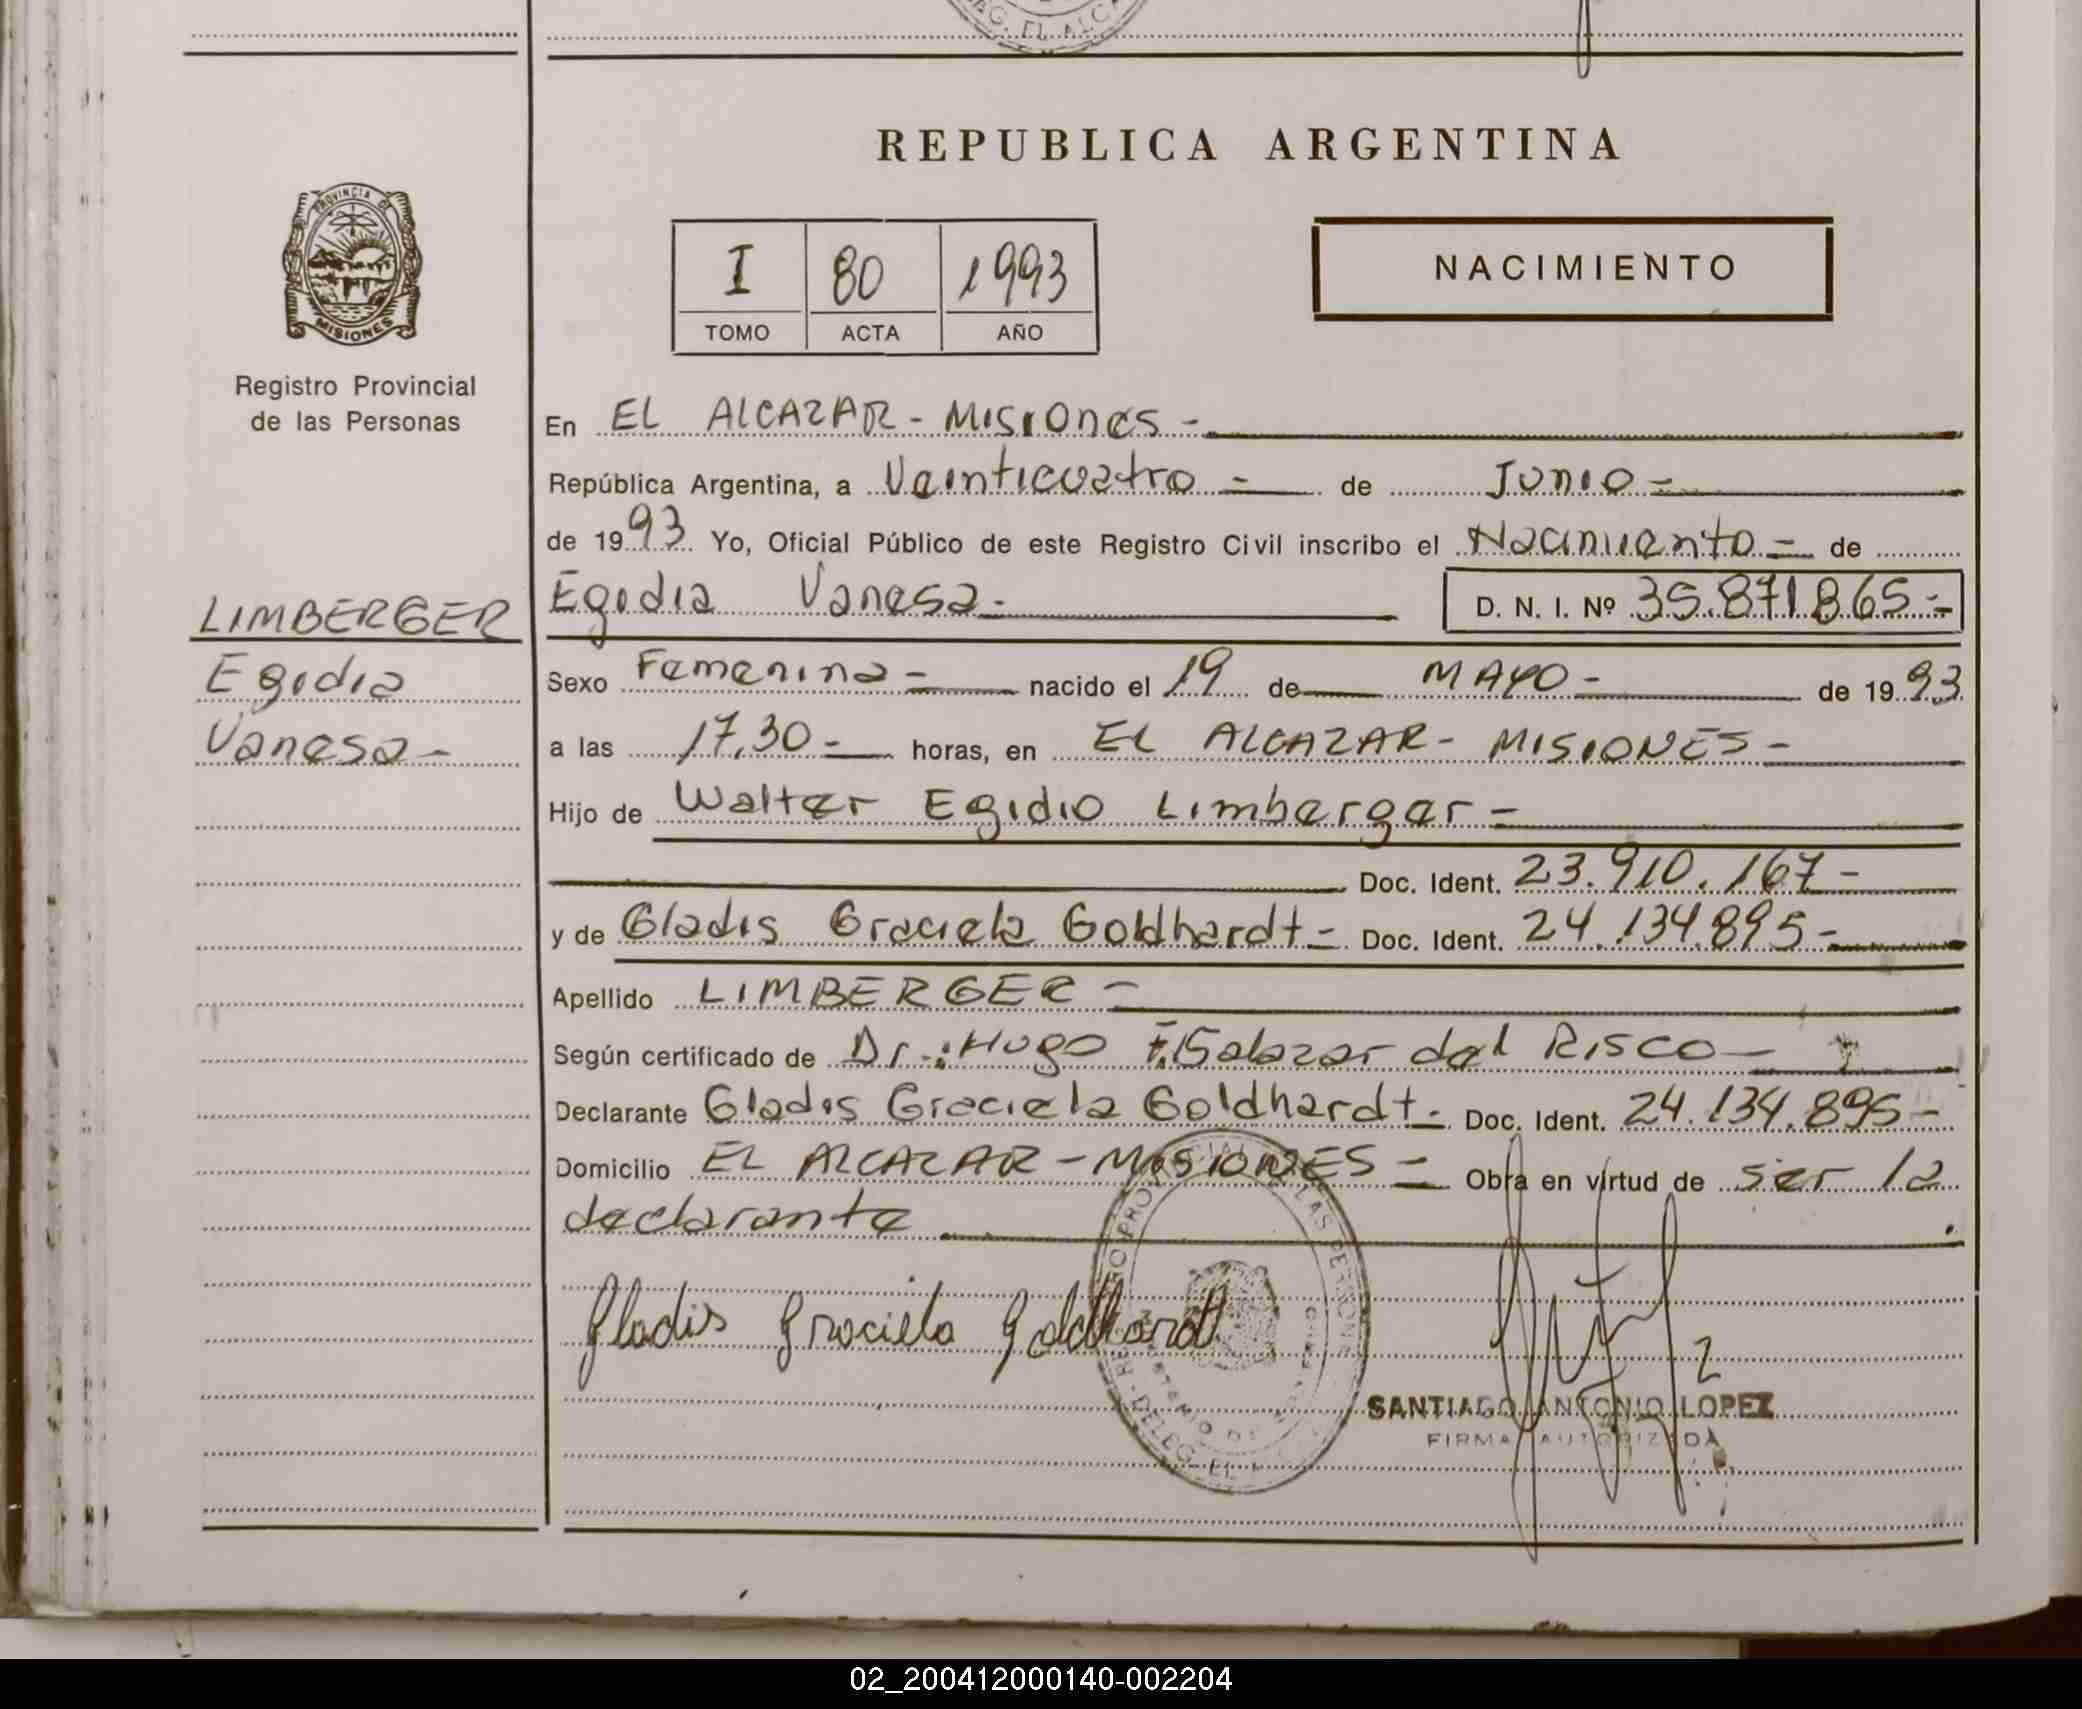 AG. EL ALCA
REPUBLICA ARGENTINA
PROVINCIA DE
MISIONES
Registro Provincial
de las Personas
I 80 1993
TOMO ACTA AÑO
NACIMIENTO
En EL ALCAZAR - Misiones -
República Argentina, a Veinticuatro - de Junio -
de 1993 Yo, Oficial Público de este Registro Civil inscribo el Nacimiento - de
Egidia Vanesa - D. N. I. Nº 35.871.865 -
LIMBERGER
Egidia
Vanesa -
Sexo Femenina - nacido el 19 de MAYO - de 1993
a las 17,30 - horas, en EL ALCAZAR - MISIONES -
Hijo de Walter Egidio Limberger -
Doc. Ident. 23.910.167 -
y de Gladis Graciela Goldhardt - Doc. Ident. 24.134.895 -
Apellido LIMBERGER -
Según certificado de Dr.: Hugo F. Salazar del Risco -
Declarante Gladis Graciela Goldhardt - Doc. Ident. 24.134.895 -
Domicilio EL ALCAZAR - MISIONES - Obra en virtud de ser la
declarante
Gladis Graciela Goldhardt
SANTIAGO ANTONIO LOPEZ
FIRMA AUTORIZADA
02_200412000140-002204